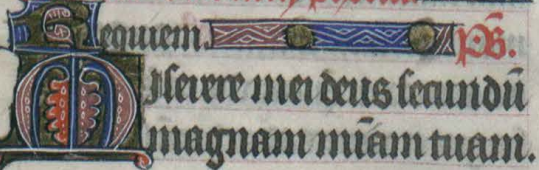 Requiem. ps̄.
Miserere mei deus secundū
magnam mīam tuam.